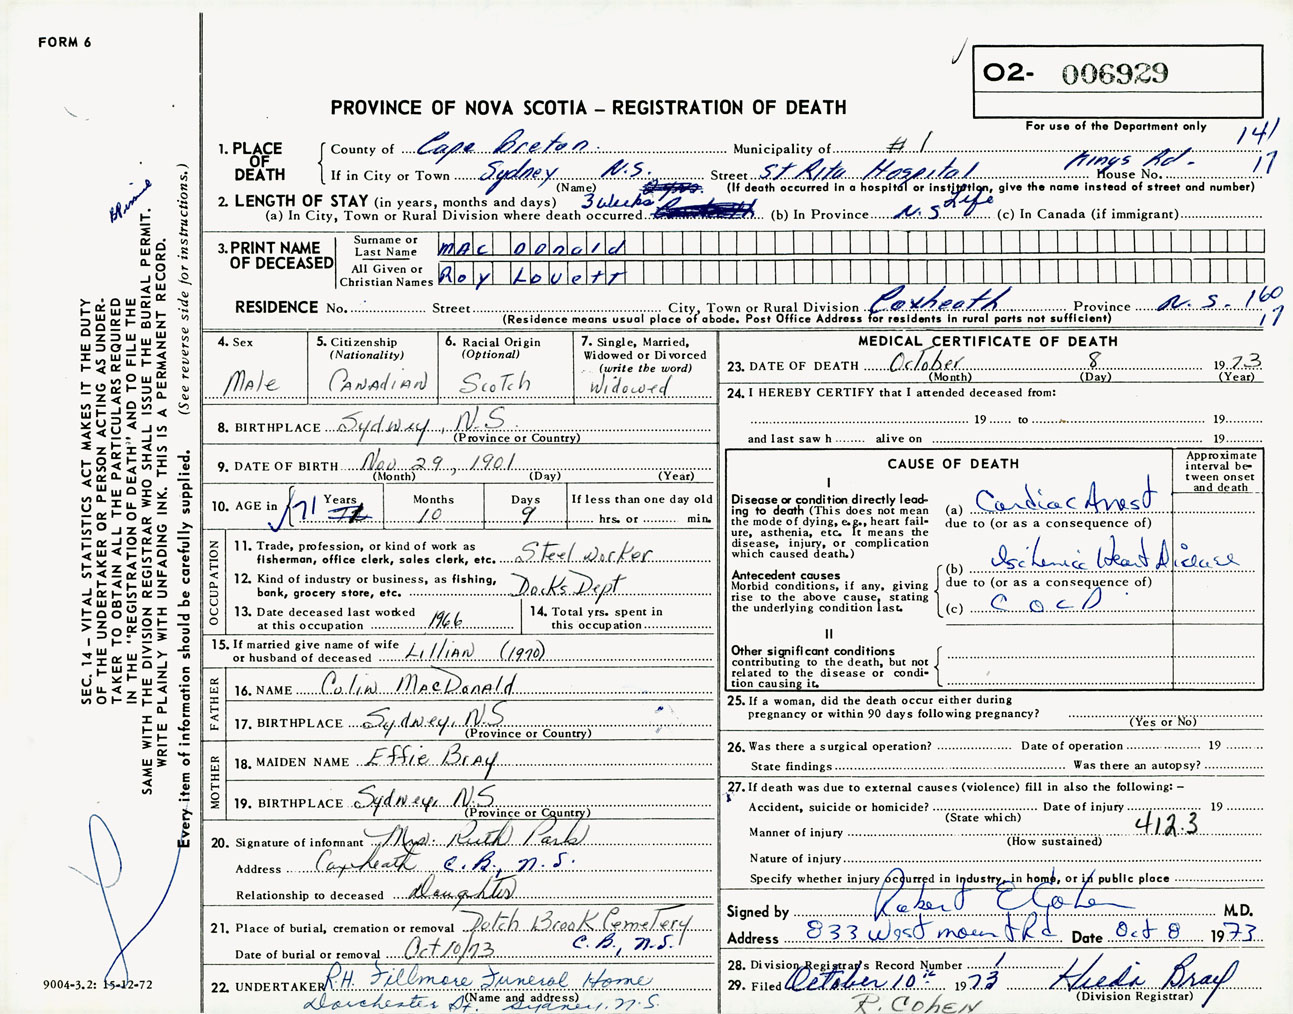 FORM 6
O2- 006929
PROVINCE OF NOVA SCOTIA – REGISTRATION OF DEATH
For use of the Department only
141
17
1. PLACE OF DEATH
County of Cape Breton Municipality of # 1
If in City or Town Sydney N.S. Street St Rita Hospital Kings Rd. House No.
(Name) (If death occurred in a hospital or institution, give the name instead of street and number)
2. LENGTH OF STAY (in years, months and days) 3 weeks
(a) In City, Town or Rural Division where death occurred (b) In Province N.S Life (c) In Canada (if immigrant)
3. PRINT NAME OF DECEASED
Surname or Last Name MAC DOnald
All Given or Christian Names Roy Lovett
RESIDENCE No. Street City, Town or Rural Division Coxheath Province N.S. 160
17
(Residence means usual place of abode. Post Office Address for residents in rural parts not sufficient)
4. Sex
Male
5. Citizenship
(Nationality)
CANADIAN
6. Racial Origin
(Optional)
Scotch
7. Single, Married,
Widowed or Divorced
(write the word)
Widowed
8. BIRTHPLACE Sydney, N.S.
(Province or Country)
9. DATE OF BIRTH Nov 29, 1901
(Month) (Day) (Year)
10. AGE in 71 Years Months 10 Days 9 If less than one day old
hrs. or min.
OCCUPATION
11. Trade, profession, or kind of work as
fisherman, office clerk, sales clerk, etc. Steel worker
12. Kind of industry or business, as fishing,
bank, grocery store, etc. Docks Dept
13. Date deceased last worked
at this occupation 1966
14. Total yrs. spent in
this occupation
15. If married give name of wife
or husband of deceased Lillian (1970)
FATHER
16. NAME Colin MacDonald
17. BIRTHPLACE Sydney, N.S
(Province or Country)
MOTHER
18. MAIDEN NAME Effie Bray
19. BIRTHPLACE Sydney, N.S
(Province or Country)
20. Signature of informant Mrs. Ruth Park
Address Coxheath C.B., N.S.
Relationship to deceased Daughter
21. Place of burial, cremation or removal Dotch Brook Cemetery
C.B., N.S.
Date of burial or removal Oct 10/73
22. UNDERTAKER R.H. Fillmore Funeral Home
(Name and address)
Dorchester St. Sydney, N.S.
MEDICAL CERTIFICATE OF DEATH
23. DATE OF DEATH October 8 1973
(Month) (Day) (Year)
24. I HEREBY CERTIFY that I attended deceased from:
19 to 19
and last saw h alive on 19
CAUSE OF DEATH
Approximate interval between onset and death
I
Disease or condition directly leading to death (This does not mean the mode of dying, e.g., heart failure, asthenia, etc. It means the disease, injury, or complication which caused death.)
(a) Cardiac Arrest
due to (or as a consequence of)
Antecedent causes
Morbid conditions, if any, giving rise to the above cause, stating the underlying condition last.
(b) Ischemic Heart Disease
due to (or as a consequence of)
(c) C O C D
II
Other significant conditions
contributing to the death, but not related to the disease or condition causing it.
25. If a woman, did the death occur either during
pregnancy or within 90 days following pregnancy?
(Yes or No)
26. Was there a surgical operation? Date of operation 19
State findings Was there an autopsy?
27. If death was due to external causes (violence) fill in also the following: –
Accident, suicide or homicide? Date of injury 19
(State which)
412.3
Manner of injury
(How sustained)
Nature of injury
Specify whether injury occurred in industry, in home, or in public place
Signed by Robert E Cohen M.D.
Address 833 Westmount Rd Date Oct 8 1973
28. Division Registrar's Record Number 1
29. Filed October 10th 1973 Hilda Bray
(Division Registrar)
R. COHEN
SEC. 14 – VITAL STATISTICS ACT MAKES IT THE DUTY
OF THE UNDERTAKER OR PERSON ACTING AS UNDER-
TAKER TO OBTAIN ALL THE PARTICULARS REQUIRED
IN THE "REGISTRATION OF DEATH" AND TO FILE THE
SAME WITH THE DIVISION REGISTRAR WHO SHALL ISSUE THE BURIAL PERMIT.
WRITE PLAINLY WITH UNFADING INK. THIS IS A PERMANENT RECORD.
Every item of information should be carefully supplied. (See reverse side for instructions.)
9004-3.2: 15-12-72